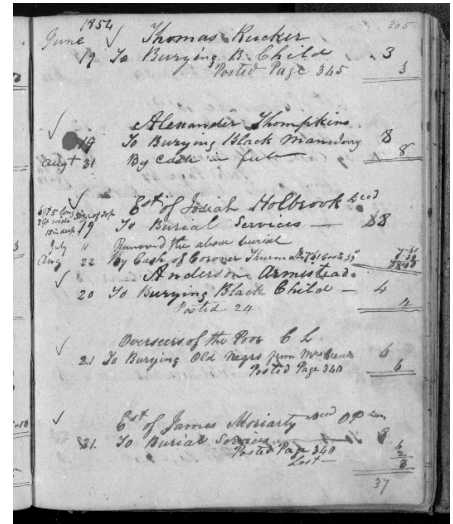 1854 205
June ✓ Thomas Rucker
19 To Burying B. Child 3
Posted Page 345 3
✓ Alexander Thompkins
19 To Burying Black Man 8
Augt 31 By Cash in full 8
✓ Est of Josiah Holbrook Decd
19 To Burial Services — $8
July " Removed the above burial
Aug 22 By Cash of Coroner
✓ Anderson Armistead
20 To Burying Black Child — 4
Posted 24 4
Overseers of the Poor C L
✓ 21 To Burying Old Negro from 6
Posted Page 340 6
✓ Est of James Moriarty Decd
21 To Burial Services 8
Posted Page 340
Lost 8
37